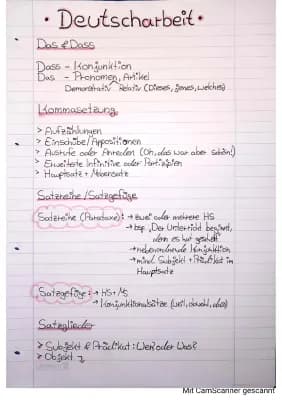 • Deutscharbeit •
Das & Dass
Dass - Konjunktion
Das - Pronomen, Artikel
Demonstrativ Relativ (Dieses, jenes, welches)
Kommasetzung
> Aufzählungen
> Einschübe/Appositionen
> Ausrufe oder Anreden (Oh, das war aber schön!)
> Erweiterte Infinitive oder Partizipien
> Hauptsatz + Nebensatz
Satzreihe/Satzgefüge
Satzreihe (Parataxe): → zwei oder mehrere HS
→ bsp. „Der Unterricht beginnt,
denn es hat
→ nebenordnende Konjunktion
→ mind. Subjekt + Prädikat im
Hauptsatz
Satzgefüge: → HS + NS
→ Konjunktionalsätze (weil, obwohl,
Satzglieder
> Subjekt & Prädikat: Wer oder Was?
> Objekt
Mit CamScanner gescannt